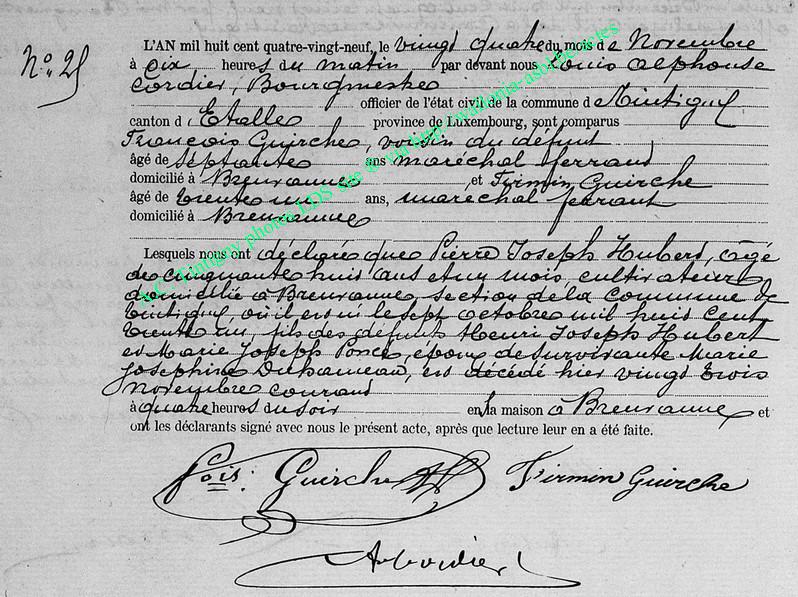 N° 25
L'AN mil huit cent quatre-vingt-neuf, le vingt quatre du mois de Novembre
à dix heures du matin par devant nous Louis Alphonse
Cordier, Bourgmestre
officier de l'état civil de la commune de Tintigny
canton d'Etalle province de Luxembourg, sont comparus
François Guirche, voisin du défunt
âgé de septante ans maréchal ferrand
domicilié à Breuvanne et Firmin Guirche
âgé de trente un ans, maréchal ferrant
domicilié à Breuvanne
Lesquels nous ont déclaré que Pierre Joseph Hubert, âgé
de cinquante huit ans et un mois, cultivateur
domicilié à Breuvanne, section de la commune de
Tintigny, où il est né le sept octobre mil huit cent
trente un, fils des défunts Henri Joseph Hubert
et Marie Joseph Ponce, époux de survivante Marie
Josephine Duhameau, est décédé hier vingt trois
novembre courant
à quatre heures du soir en la maison à Breuvanne et
ont les déclarants signé avec nous le présent acte, après que lecture leur en a été faite.
Fois Guirche Firmin Guirche
A Cordier
A.C. Tintigny photos LDS site via http://wallonia-asbl.be/actes